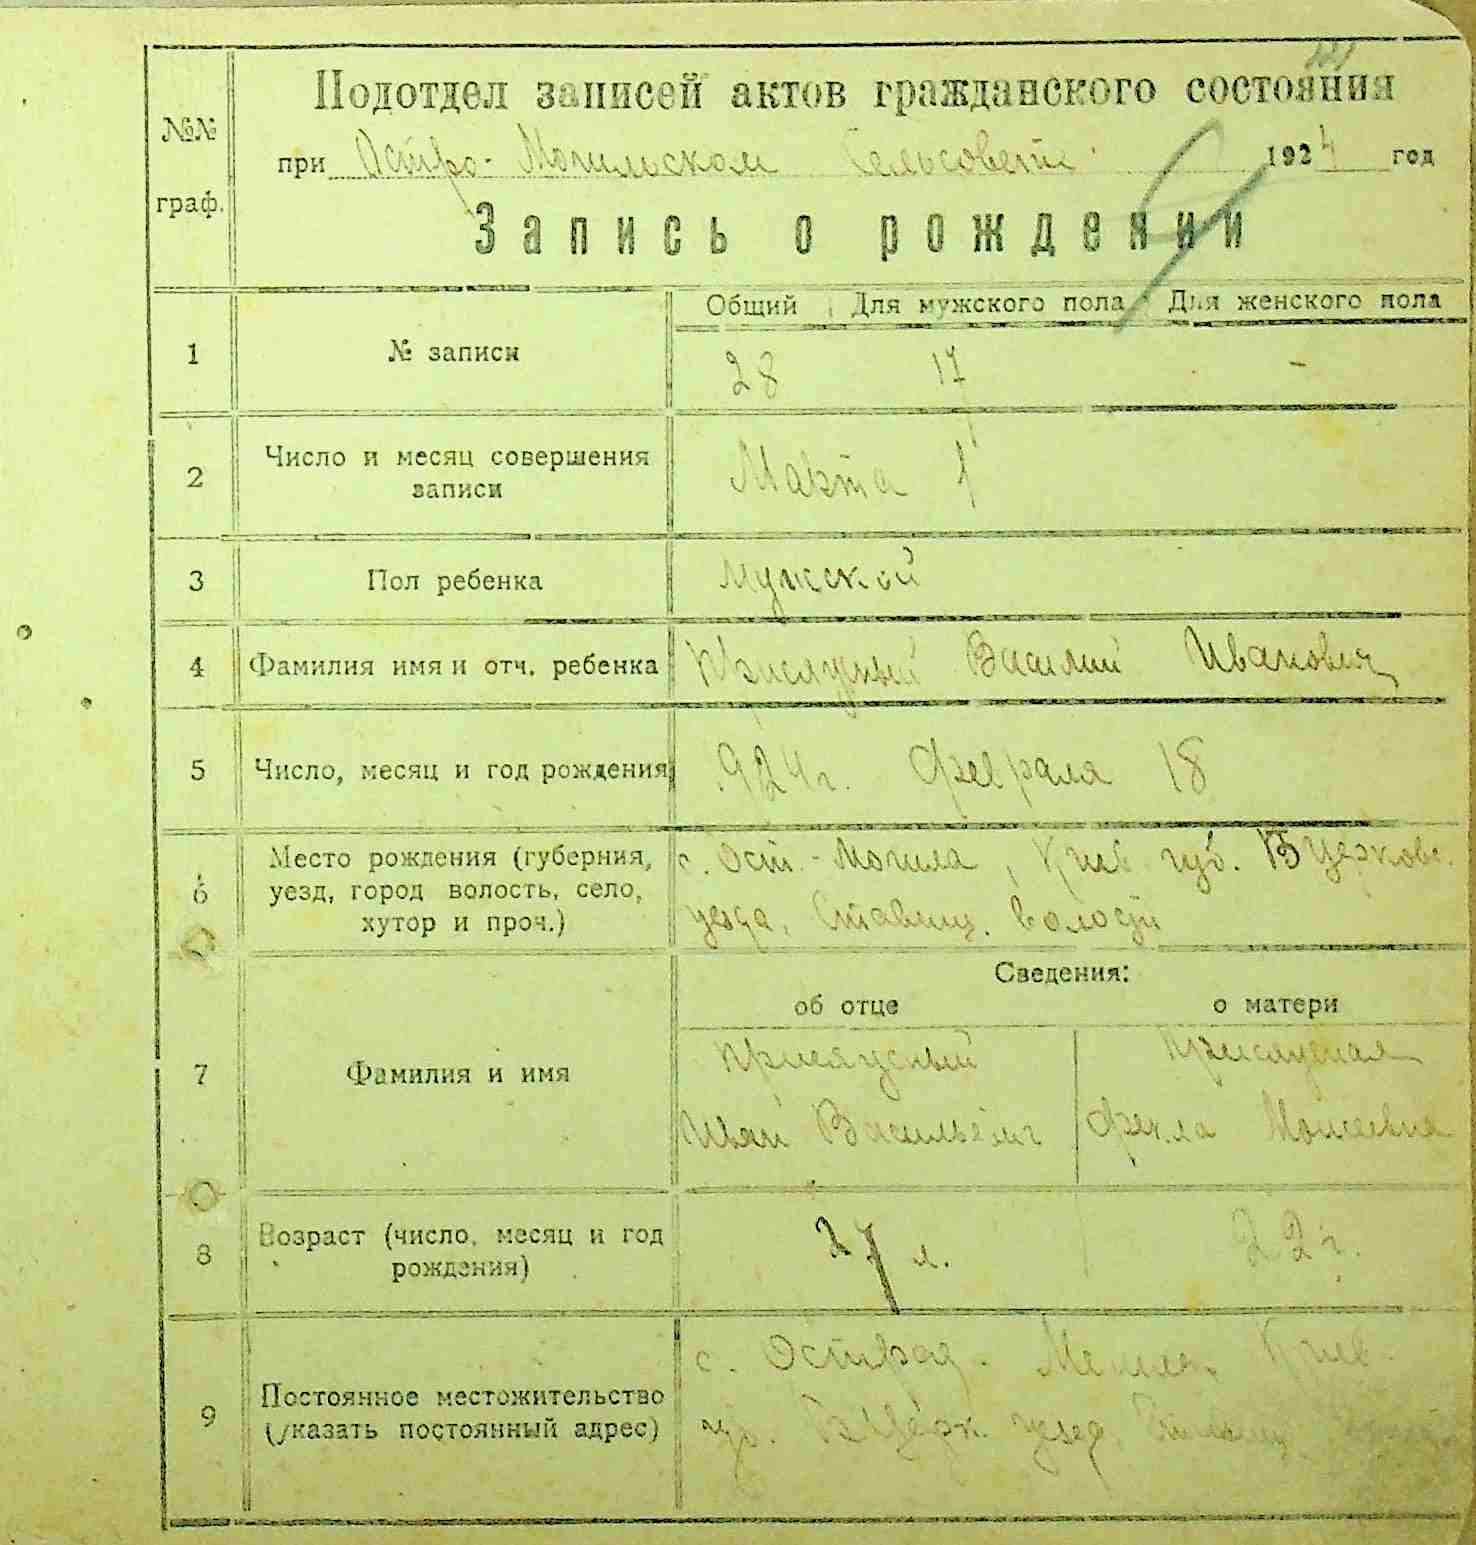 Подотдел записей актов гражданского состояния
№№ граф.
при Остро-Могильском Сельсовете 1924 год
Запись о рождении
Общий Для мужского пола Для женского пола
1 № записи 28 17 -
2 Число и месяц совершения
записи Марта 1
3 Пол ребенка Мужской
4 Фамилия имя и отч. ребенка Присяжный Василий Иванович
5 Число, месяц и год рождения 924 г. февраля 18
6 Место рождения (губерния, с. Ост.-Могила, Киев. губ. БЦерковс.
уезд, город волость, село, уезда, Ставищ. волости
хутор и проч.)
Сведения:
об отце о матери
7 Фамилия и имя
Присяжный Присяжная
Иван Васильевич Фекла Моисеевна
8 Возраст (число, месяц и год 27 л. 22 г.
рождения)
9 Постоянное местожительство с. Острая Могила, Киев.
(указать постоянный адрес) губ. БЦерк. уезд.